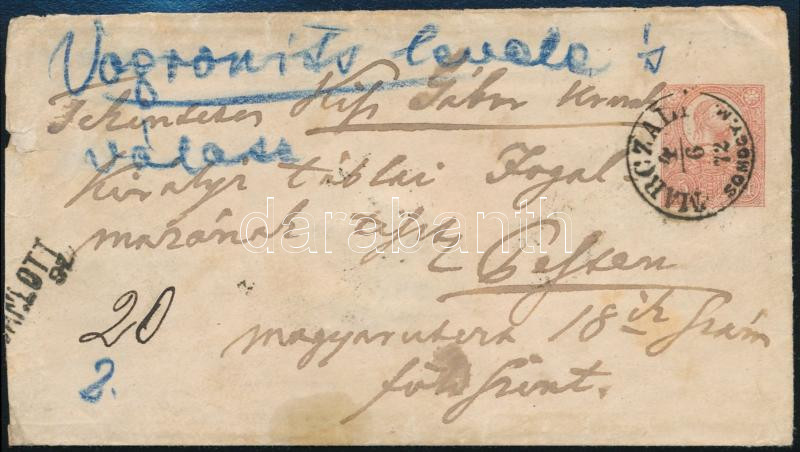 Vogronits levele 's
Tekintetes Kiss Gábor Urnak
válasz
Királyi táblai Fogal
mazónak tiszt.
Pesten
20
magyarutcza 18ik szám
földszint.
2.
MARCZALI
4/6
72
SOMOGY.M.
darabanth